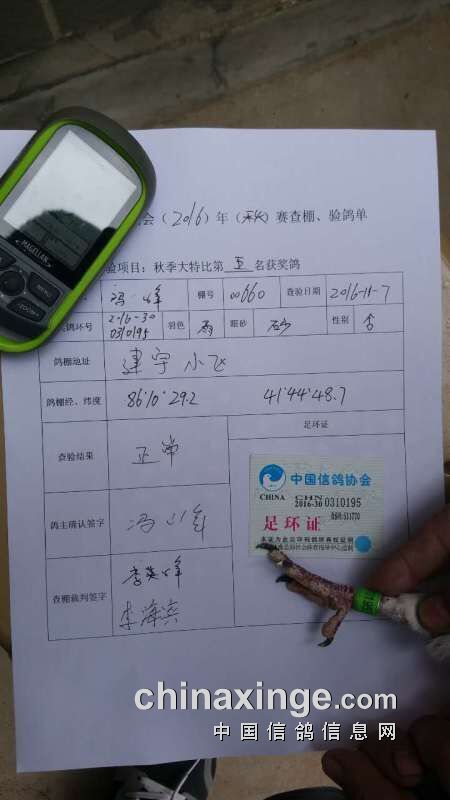 会(2016)年(秋)赛查棚、验鸽单
验项目：秋季大特比第 五 名获奖鸽
冯 棚号 00660 查验日期 2016-11-7
鸽环号 2016-30 0310195 羽色 雨 眼砂 砂 性别
鸽棚地址 建宇 小飞
鸽棚经、纬度 86°10'29.2 41°44'48.7
足环证
查验结果 正常
鸽主确认签字 冯
查棚裁判签字 李英峰
李海滨
中国信鸽协会
CHINA CHN
2016-30 0310195
足环证
MAGELLAN
MENU
chinaxinge.com
中国信鸽信息网